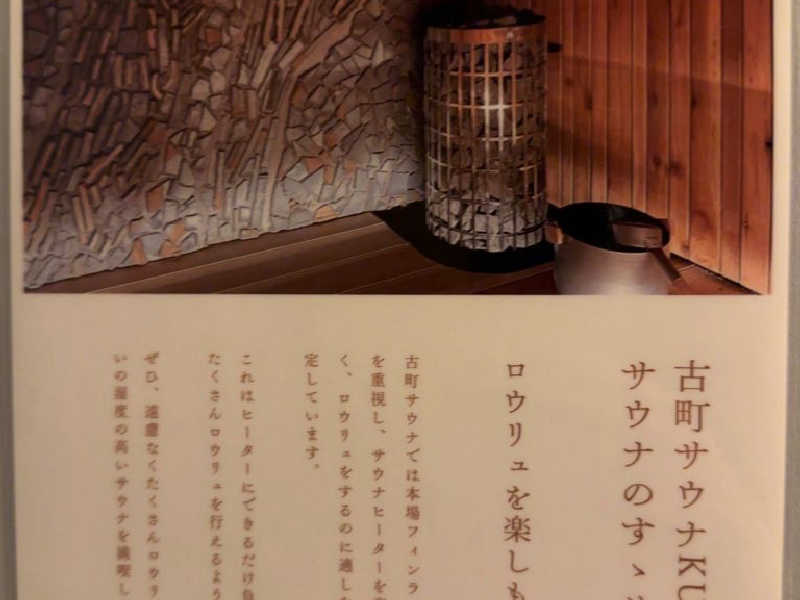 古町サウナKU
サウナのすゝ
ロウリュを楽しも
古町サウナでは本場フィンラ
を重視し、サウナヒーターを
く、ロウリュをするのに適した
定しています。
これはヒーターにできるだけ負
たくさんロウリュを行えるよう
ぜひ、遠慮なくたくさんロウリ
いの湿度の高いサウナを満喫し